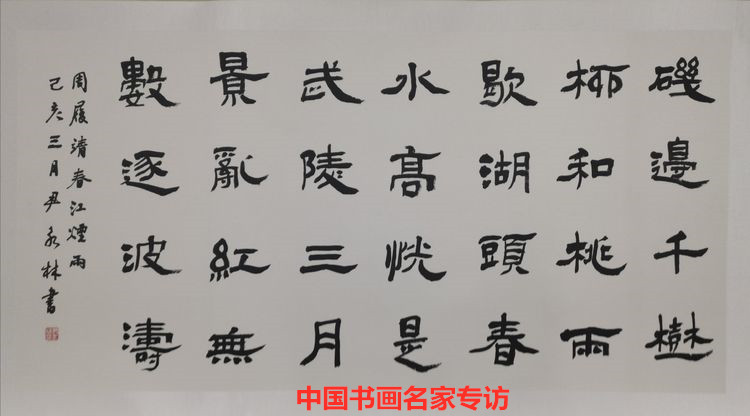 磯邊千樹
柳和桃雨
歇湖頭春
水高恍是
武陵三月
景亂紅無
數逐波濤
周履清春江煙雨
己亥三月尹永林書
中国书画名家专访